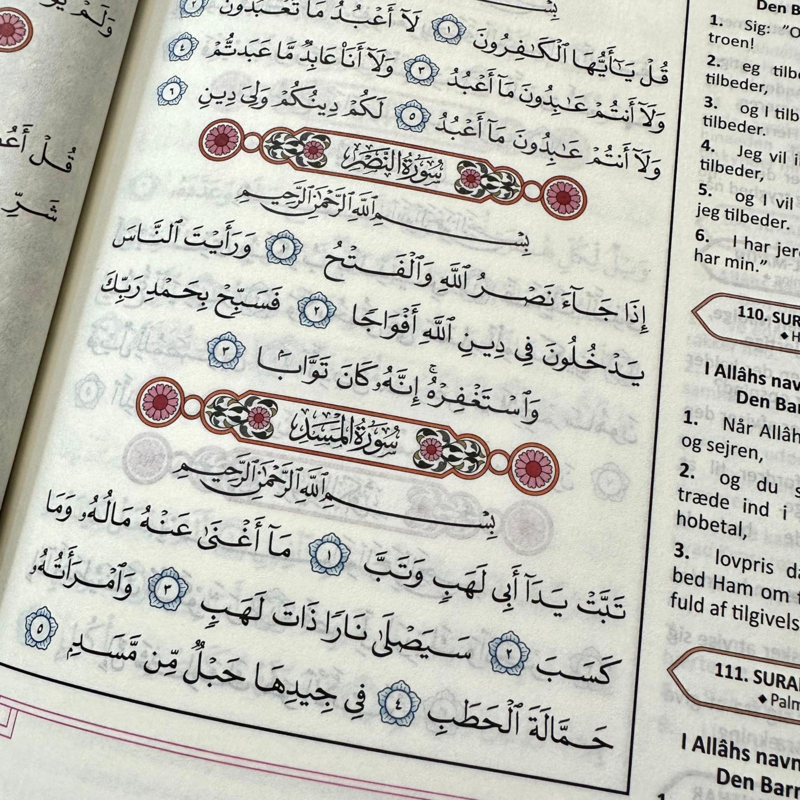 قُلْ يَٰٓأَيُّهَا ٱلْكَٰفِرُونَ ١ لَآ أَعْبُدُ مَا تَعْبُدُونَ ٢
وَلَآ أَنتُمْ عَٰبِدُونَ مَآ أَعْبُدُ ٣ وَلَآ أَنَا۠ عَابِدٌ مَّا عَبَدتُّمْ ٤
وَلَآ أَنتُمْ عَٰبِدُونَ مَآ أَعْبُدُ ٥ لَكُمْ دِينُكُمْ وَلِىَ دِينِ ٦
سُورَةُ النَّصْرِ
بِسْمِ ٱللَّهِ ٱلرَّحْمَٰنِ ٱلرَّحِيمِ
إِذَا جَآءَ نَصْرُ ٱللَّهِ وَٱلْفَتْحُ ١ وَرَأَيْتَ ٱلنَّاسَ
يَدْخُلُونَ فِى دِينِ ٱللَّهِ أَفْوَاجًا ٢ فَسَبِّحْ بِحَمْدِ رَبِّكَ
وَٱسْتَغْفِرْهُ ۚ إِنَّهُۥ كَانَ تَوَّابًۢا ٣
سُورَةُ المَسَدِ
بِسْمِ ٱللَّهِ ٱلرَّحْمَٰنِ ٱلرَّحِيمِ
تَبَّتْ يَدَآ أَبِى لَهَبٍ وَتَبَّ ١ مَآ أَغْنَىٰ عَنْهُ مَالُهُۥ وَمَا
كَسَبَ ٢ سَيَصْلَىٰ نَارًا ذَاتَ لَهَبٍ ٣ وَٱمْرَأَتُهُۥ
حَمَّالَةَ ٱلْحَطَبِ ٤ فِى جِيدِهَا حَبْلٌ مِّن مَّسَدٍۭ ٥
Den Ba
1. Sig: "O
troen!
2. eg tilb
tilbeder,
3. og I tilb
tilbeder.
4. Jeg vil i
tilbeder,
5. og I vil
jeg tilbeder.
6. I har jer
har min."
110. SUR
I Allâhs nav
Den Bar
1. Når Allâh
og sejren,
2. og du s
træde ind i
hobetal,
3. lovpris d
bed Ham om t
fuld af tilgivels
111. SURA
Palm
I Allâhs navn
Den Barm
وَلَمْ
قُلْ
شَرِّ